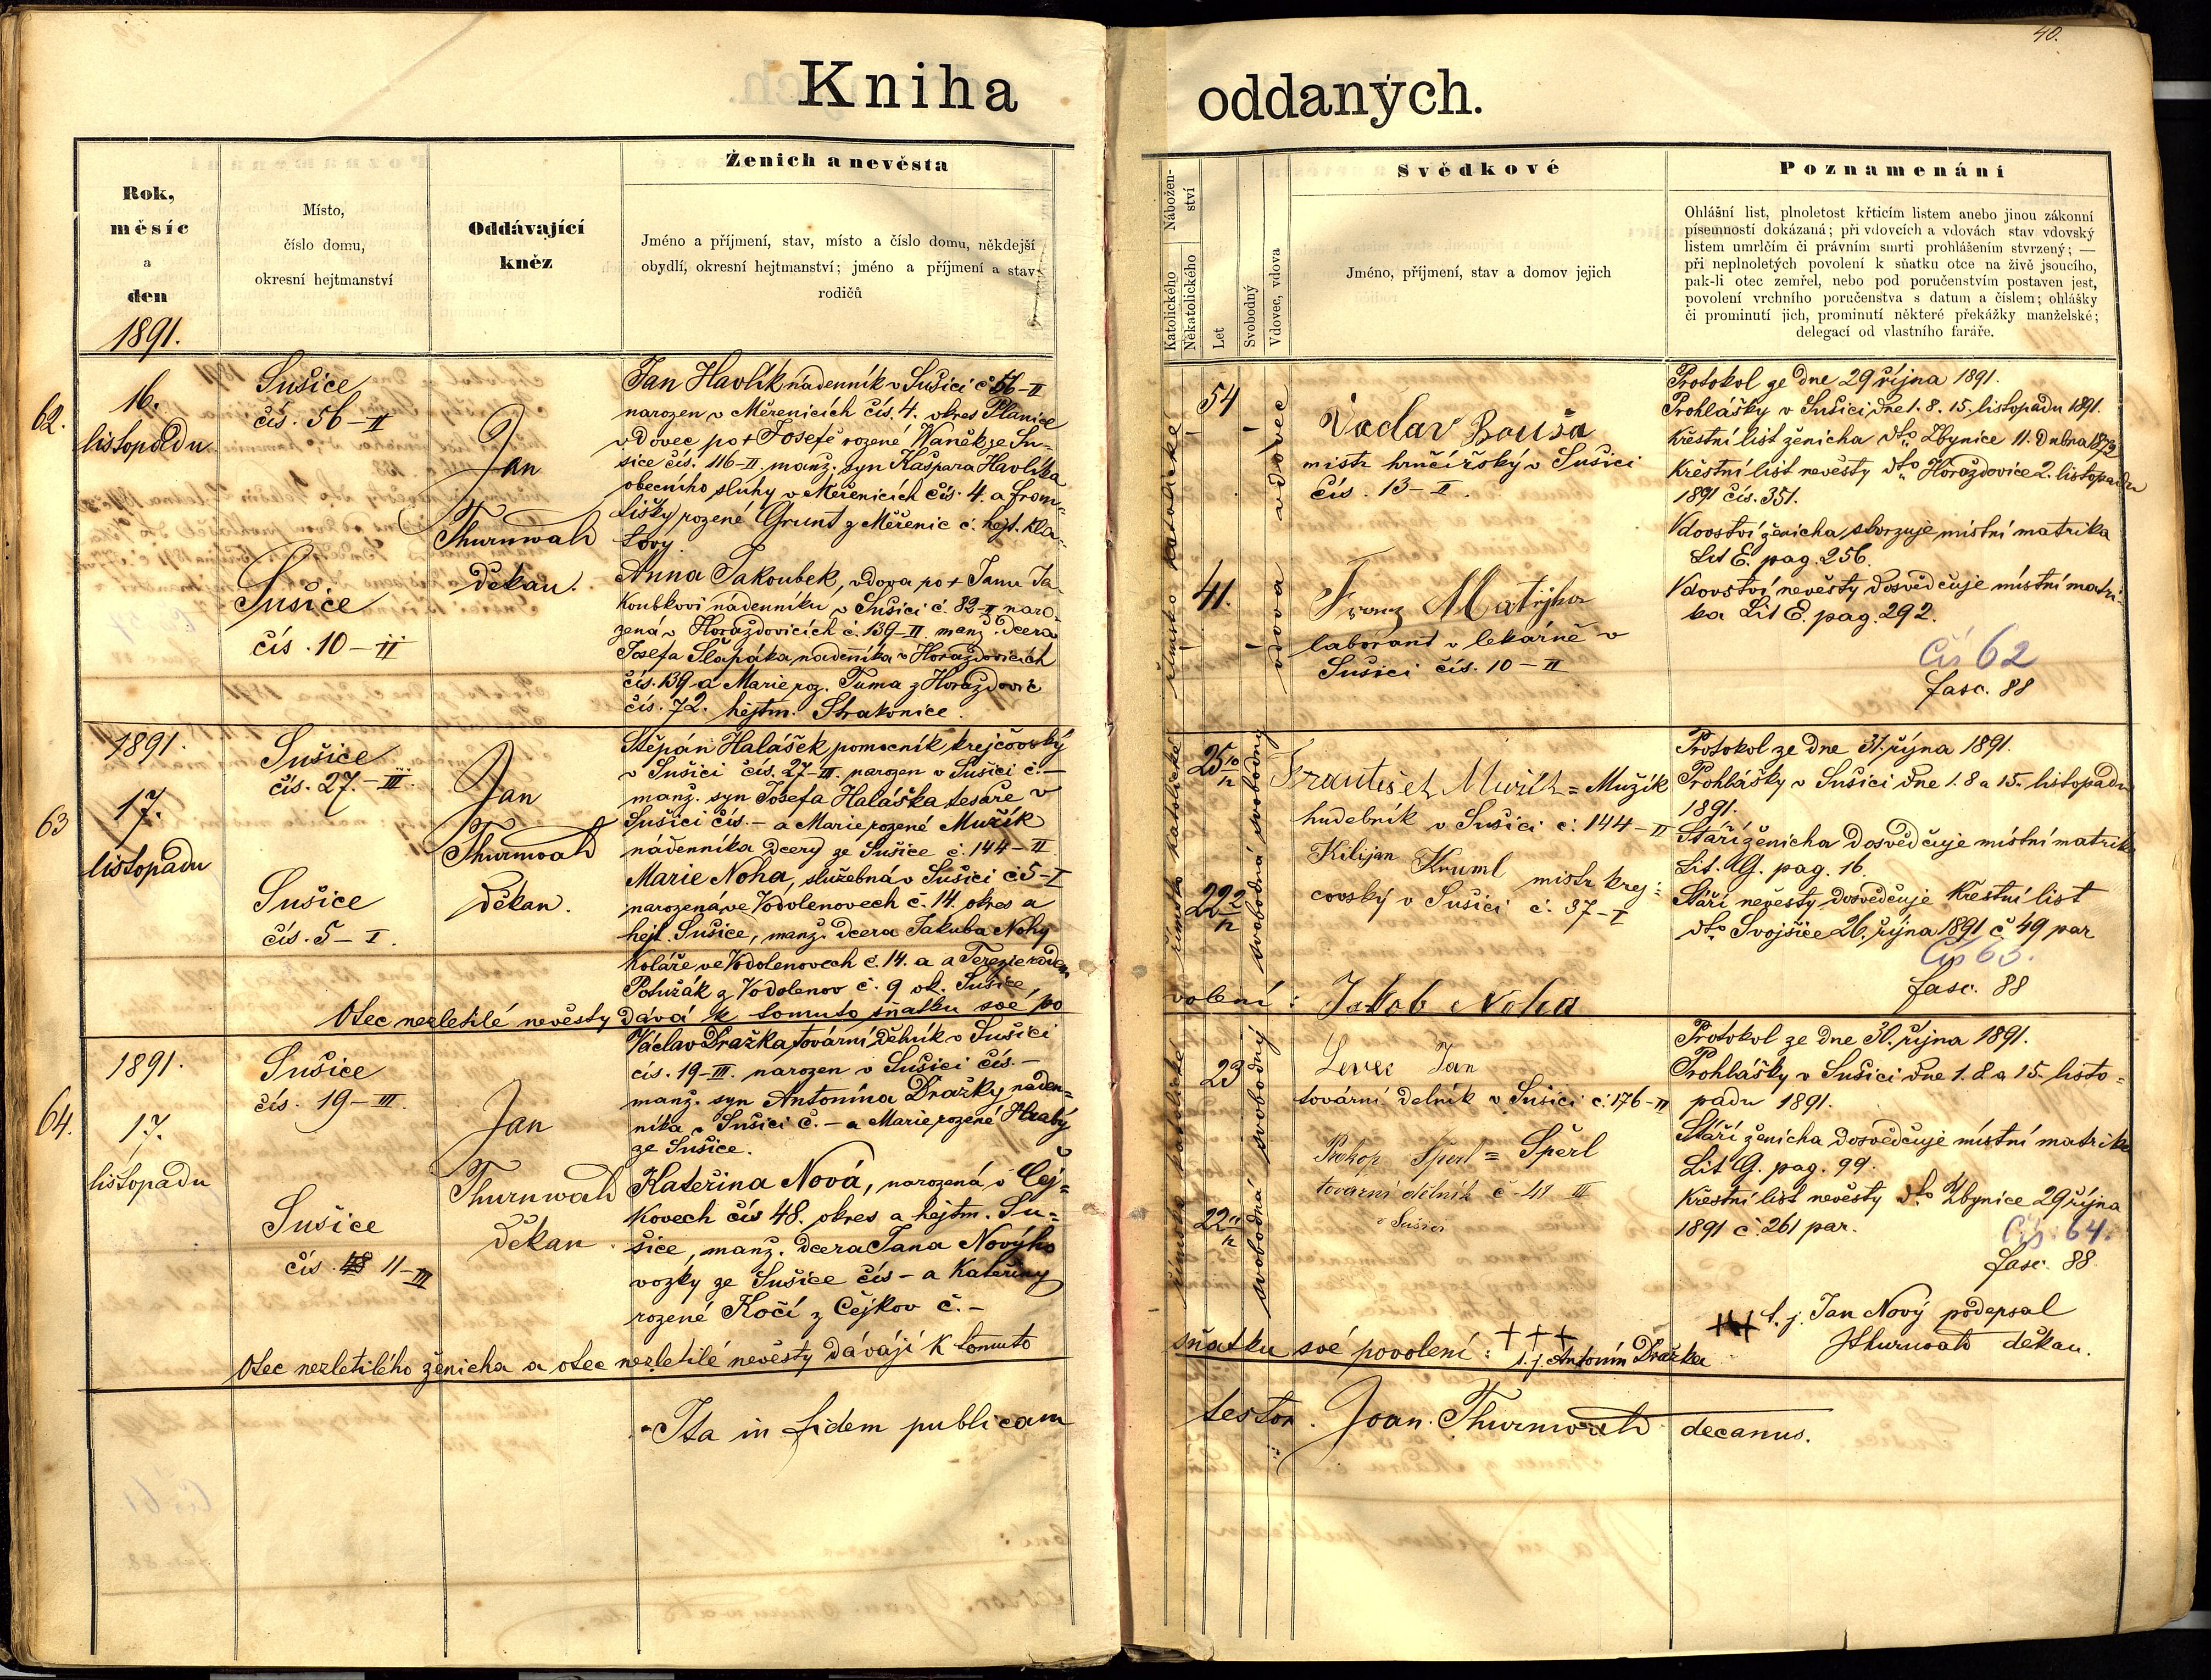 40.
Kniha oddaných.
Rok,
měsíc
a
den
1891.
Místo,
číslo domu,
okresní hejtmanství
Oddávající
kněz
Ženich a nevěsta
Jméno a příjmení, stav, místo a číslo domu, někdejší
obydlí, okresní hejtmanství; jméno a příjmení a stav
rodičů
Nábožen-
ství
Katolického
Někatolického
Let
Svobodný
Vdovec, vdova
Svědkové
Jméno, příjmení, stav a domov jejich
Poznamenání
Ohlášní list, plnoletost křticím listem anebo jinou zákonní
písemností dokázaná; při vdovcích a vdovách stav vdovský
listem umrlčím či právním smrti prohlášením stvrzený; —
při neplnoletých povolení k sňatku otce na živě jsoucího,
pak-li otec zemřel, nebo pod poručenstvím postaven jest,
povolení vrchního poručenstva s datum a číslem; ohlášky
či prominutí jich, prominutí některé překážky manželské;
delegací od vlastního faráře.
62.
16.
listopadu
Sušice
čís. 56-II
Sušice
čís. 10-II
Jan
Thurnwald
děkan.
Jan Havlík nádenník v Sušici č. 56-II
narozen v Měřenicích čís. 4. okres Planice
vdovec po + Josefě rozené Waněk ze Su-
šice čís. 116-II. manž. syn Kašpara Havlíka
obecního sluhy v Měřenicích čís. 4. a From-
lišky rozené Grunt z Měřenic č. hejt. Kla-
tovy.
Anna Jakoubek, vdova po + Janu Ja-
koubkovi nádenníku v Sušici č. 82-II naro-
zená v Horažďovicích č. 139-II. manž. dcera
Josefa Slapáka nádenníka v Horažďovicích
čís. 139 a Marie roz. Tuma z Horažďovic
čís. 72. hejtm. Strakonice.
římsko katolické
54
41.
vdovec
vdova
Václav Bouša
mistr hrnčířský v Sušici
čís. 13-II.
Franz Matějka
laborant v lekárně v
Sušici čís. 10-II
Protokol ze dne 29 října 1891.
Prohlášky v Sušici dne 1. 8. 15. listopadu 1891.
Křestní list ženicha dto Zbynice 11. dubna 1873
Křestní list nevěsty dto Horažďovice 2. listopadu
1891 čís. 351.
Vdovství ženicha stvrzuje místní matrika
Lit E. pag. 256.
Vdovství nevěsty dosvědčuje místní matri-
ka Lit E. pag. 292.
Čís 62
fasc. 88
63
1891.
17.
listopadu
Sušice
čís. 27.-III.
Sušice
čís. 5-I.
Jan
Thurnwald
děkan.
Štěpán Halášek pomocník krejčovský
v Sušici čís. 27-III. narozen v Sušici č.-
manž. syn Josefa Haláška tesaře v
Sušici čís.- a Marie rozené Mužík
nádenníka dcery ze Sušice č. 144-II
Marie Noha, služebná v Sušici č 5-I
narozená ve Vodolenovech č. 14. okres a
hejt. Sušice, manž. dcera Jakuba Nohy
koláře ve Vodolenovech č. 14. a a Terezie rozen
Potužák z Vodolenov č. 9 ok. Sušice,
Otec nezletilé nevěsty dává k tomuto sňatku své po
volení: Jakob Noha
římsko katolické
25 10/12
22 2/12
svobodný
svobodná
František Mužík = Mužík
hudebník v Sušici č: 144-II
Kilijan Kruml mistr krej-
covský v Sušici č. 37-I
Protokol ze dne 31. října 1891.
Prohlášky v Sušici dne 1. 8 a 15. listopadu
1891.
Stáří ženicha dosvědčuje místní matrika
Lit. G. pag. 16.
Stáří nevěsty dosvědčuje křestní list
dto Svojšice 26. října 1891 č 49 par
Čís 63.
fasc. 88
64.
1891.
17.
listopadu
Sušice
čís. 19-III.
Sušice
čís. 48 11-III
Jan
Thurnwald
děkan.
Václav Dražka tovární dělník v Sušici
čís. 19-III. narozen v Sušici čís.-
manž. syn Antonína Dražky náden-
níka v Sušici č.- a Marie rozené Hrabý
ze Sušice.
Kateřina Nová, narozená v Čej-
kovech čís 48. okres a hejtm. Su-
šice, manž. dcera Jana Nového
vozky ze Sušice čís- a Kateřiny
rozené Kočí z Čejkov č.-
římsko katolické
23
22 11/12
svobodný
svobodná
Jan
tovární delník v Sušici č. 176-II
Prokop Šperl = Šperl
tovarní dělník č 48 III
v Sušici
Protokol ze dne 30. října 1891.
Prohlášky v Sušici dne 1. 8. a 15. listo-
padu 1891.
Stáří ženicha dosvědčuje místní matrika
Lit G. pag. 99.
Křestní list nevěsty dto Zbynice 29 října
1891 č. 261 par.
Čís. 64.
fasc. 88.
+++ t. j. Jan Nový podepsal
JThurnwald děkan.
Otec nezletilého ženicha a otec nezletilé nevěsty dávají k tomuto
sňatku své povolení: +++ t. j. Antonín Dražka
Ita in fidem publicam
testor. Joan. Thurnwald decanus.